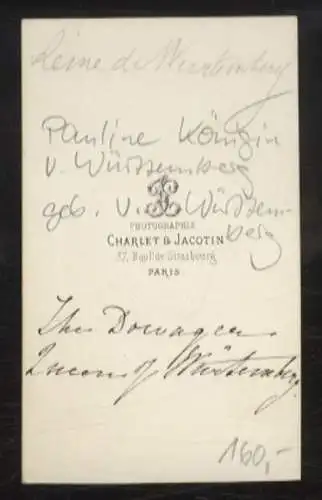 Reine de Wurtemberg
Pauline Königin
v. Württemberg
geb. v. Württem-
berg
PHOTOGRAPHIE
CHARLET & JACOTIN
37, Boul.de Strasbourg
PARIS
The Dowager
Queen of Würtemberg.
160,-